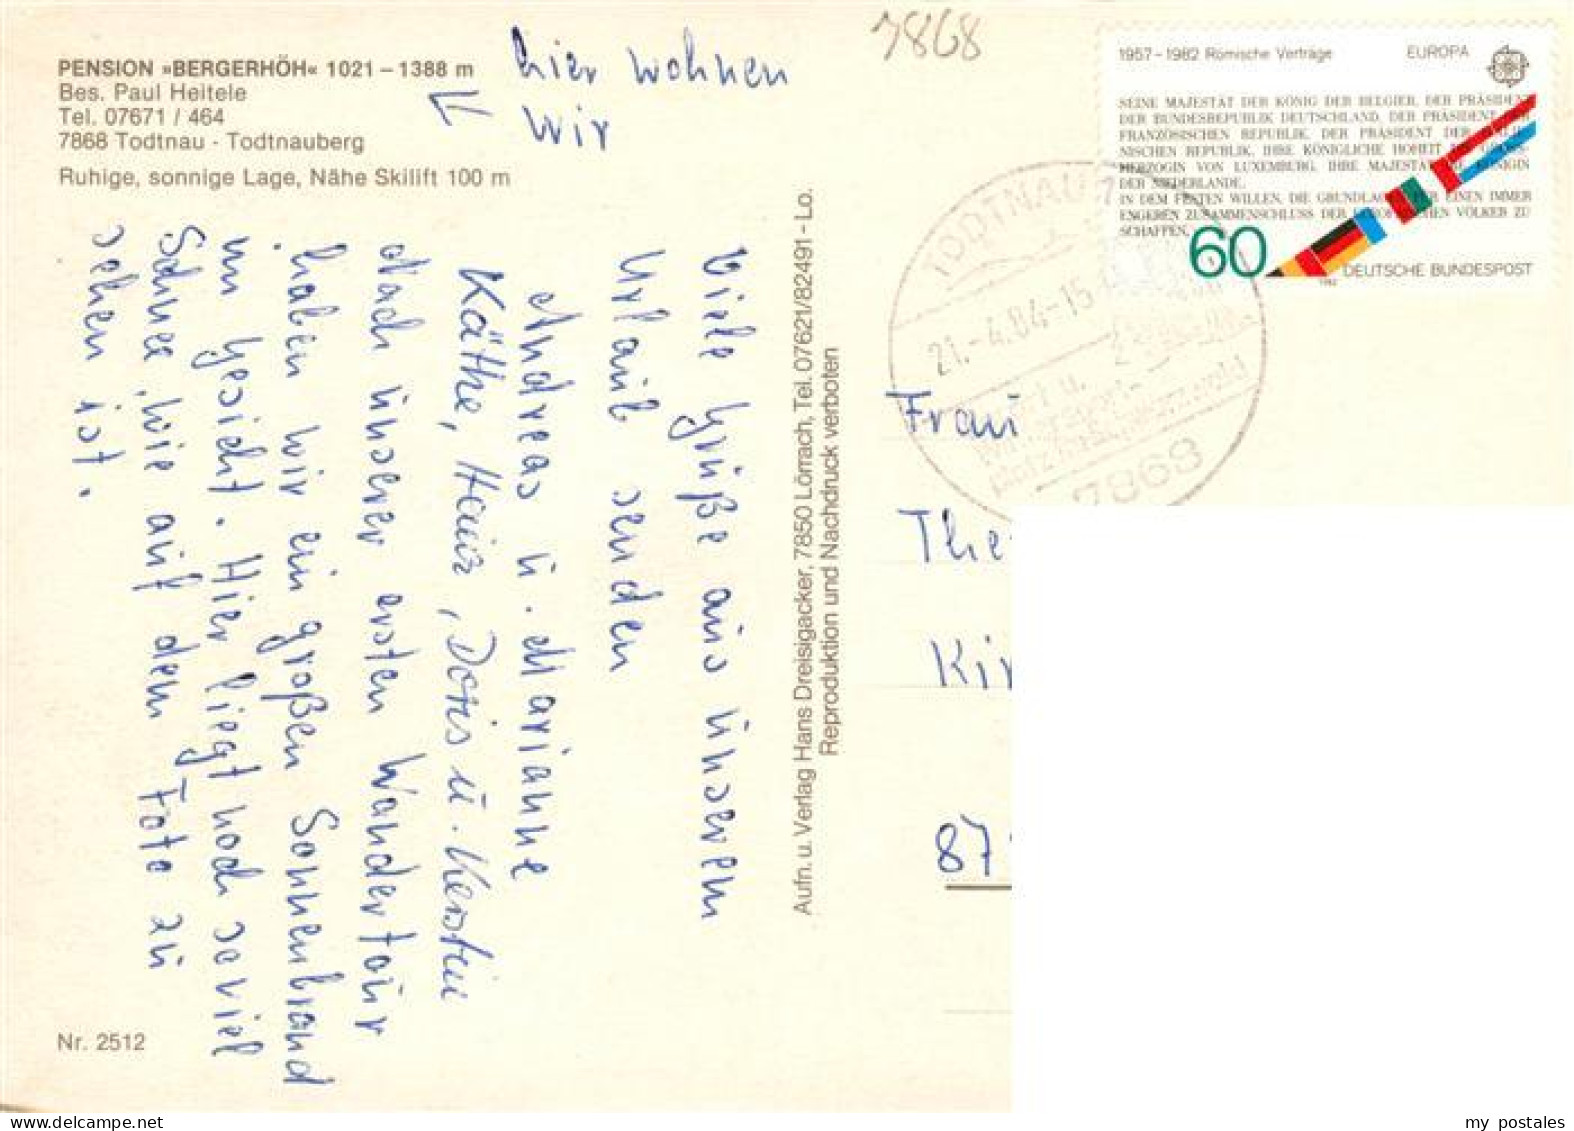 PENSION »BERGERHÖH« 1021 – 1388 m
Bes. Paul Heitele
Tel. 07671 / 464
7868 Todtnau - Todtnauberg
Ruhige, sonnige Lage, Nähe Skilift 100 m
hier wohnen
wir
7868
1957–1982 Römische Verträge EUROPA
SEINE MAJESTÄT DER KÖNIG DER BELGIER, DER PRÄSIDENT
DER BUNDESREPUBLIK DEUTSCHLAND, DER PRÄSIDENT DER
FRANZÖSISCHEN REPUBLIK, DER PRÄSIDENT DER ITALIE-
NISCHEN REPUBLIK, IHRE KÖNIGLICHE HOHEIT DIE GROSS-
HERZOGIN VON LUXEMBURG, IHRE MAJESTÄT DIE KÖNIGIN
DER NIEDERLANDE,
IN DEM FESTEN WILLEN, DIE GRUNDLAGEN FÜR EINEN IMMER
ENGEREN ZUSAMMENSCHLUSS DER EUROPÄISCHEN VÖLKER ZU
SCHAFFEN,
60
DEUTSCHE BUNDESPOST
1982
TODTNAU
21.-4.84-15
7868
Viele Grüße aus unserem
Urlaub senden
Andreas u. Marianne
Käthe, Heinz, Doris u. Kerstin
Nach unserer ersten Wandertour
haben wir ein großen Sonnenbrand
im Gesicht. Hier liegt noch soviel
Schnee, wie auf dem Foto zu
sehen ist.
Aufn. u. Verlag Hans Dreisigacker, 7850 Lörrach, Tel. 07621/82491 - Lo.
Reproduktion und Nachdruck verboten
Frau
The
Kir
87
Nr. 2512
my postales